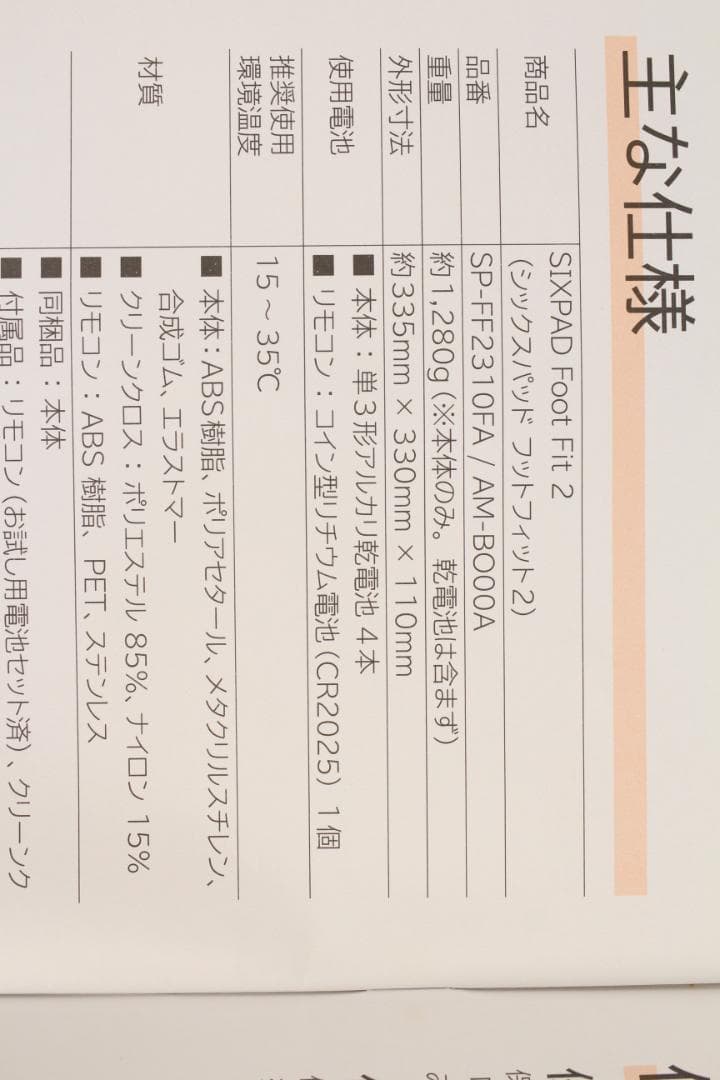 主な仕様
商品名 SIXPAD Foot Fit 2
(シックスパッド フットフィット2)
品番 SP-FF2310FA / AM-BO00A
重量 約1,280g (※本体のみ。乾電池は含まず)
外形寸法 約335mm × 330mm × 110mm
使用電池 ■ 本体:単3形アルカリ乾電池 4本
■ リモコン:コイン型リチウム電池 (CR2025) 1個
推奨使用
環境温度 15～35℃
材質 ■ 本体:ABS樹脂、ポリアセタール、メタクリルスチレン、
合成ゴム、エラストマー
■ クリーンクロス:ポリエステル 85%、ナイロン 15%
■ リモコン:ABS 樹脂、PET、ステンレス
■ 同梱品:本体
■ 付属品:リモコン (お試し用電池セット済)、クリーンク